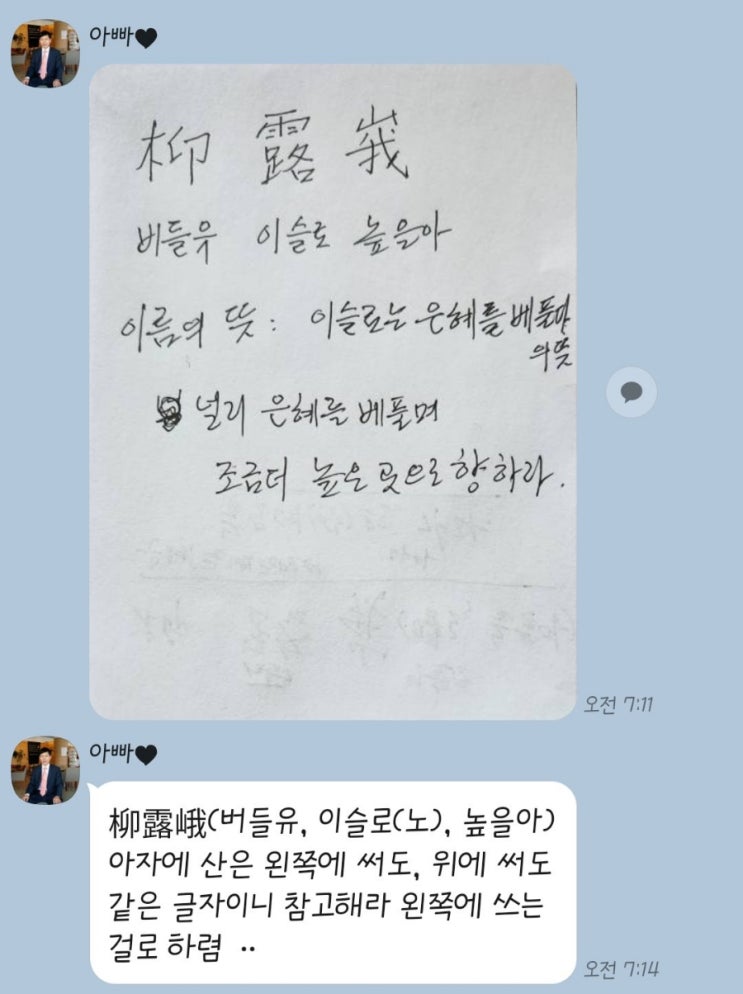 아빠♥
柳 露 峩
버들유 이슬로 높을아
이름의 뜻 : 이슬로는 은혜를 베풀다
의 뜻
널리 은혜를 베풀며
조금더 높은 곳으로 향하라.
오전 7:11
아빠♥
柳露峨(버들유, 이슬로(노), 높을아)
아자에 산은 왼쪽에 써도, 위에 써도
같은 글자이니 참고해라 왼쪽에 쓰는
걸로 하렴 ··
오전 7:14